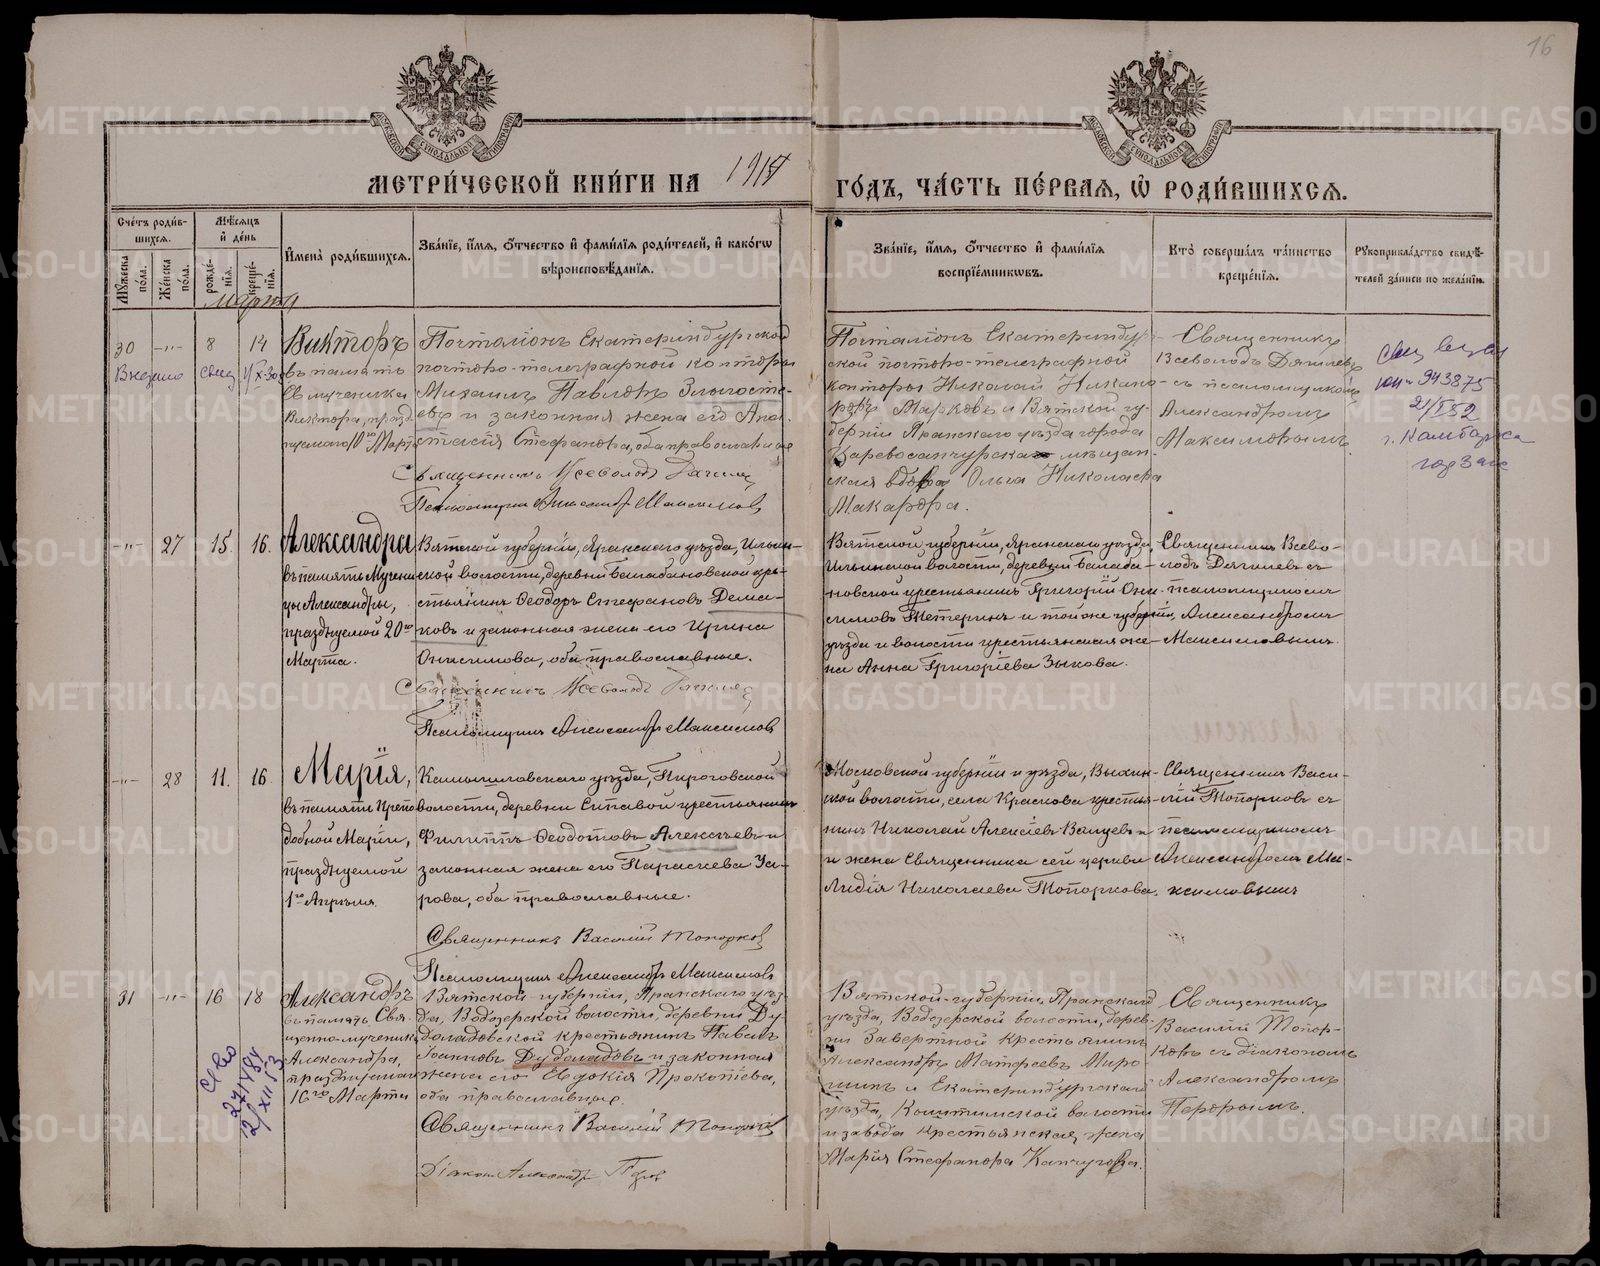 16
МЕТРИ́ЧЕСКОЙ КНИ́ГИ НА 1914 ГО́ДЪ, ЧА́СТЬ ПЕ́РВАЯ, Ѡ҆ РОДИ́ВШИХСЯ.
Сче́тъ роди́в-
шихся.
Мѣ́сяцъ
и҆ де́нь
И҆мена̀ роди́вшихся.
Зва́нїе, и҆́мя, ѻ҆́тчество и҆ фами́лїя роди́телей, и҆ како́гѡ
вѣроисповѣ́данїя.
Зва́нїе, и҆́мя, ѻ҆́тчество и҆ фами́лїя
воспрїе́мникѡвъ.
Кто̀ соверша́лъ та́инство
креще́нїя.
Рꙋкоприкла́дство свидѣ́-
телей за́писи по жела́нїю.
Мꙋ́жеска
по́ла.
Же́нска
по́ла.
рожде́-
нїя.
креще́-
нїя.
Марта
30 -"- 8 14
Викторъ
въ память
Св мученика
Виктора, празд
нуемаго 10го Марта
Почталіонъ Екатеринбургской
почтово-телеграфной конторы
Михаилъ Павловъ Злыгосте-
въ и законная жена его Анас-
тасія Стефанова, оба православные
Священникъ Всеволодъ Дягилевъ
Псаломщикъ Александръ Максимовъ
Почталіонъ Екатеринбург-
ской почтово-телеграфной
конторы Николай Никано-
ровъ Марковъ и Вятской гу-
берніи Яранскаго уѣзда города
Царевосанчурска мѣщан-
ская вдова Ольга Николаева
Макарова.
Священникъ
Всеволодъ Дягилевъ
съ псаломщикомъ
Александромъ
Максимовымъ.
943875
21/I 52
г. Камбарка
-"- 27 15. 16.
Александра
въ память Мучени
цы Александры,
празднуемой 20го
Марта.
Вятской губерніи, Яранскаго уѣзда, Ильин-
ской волости, деревни Балабановской кре-
стьянинъ Ѳеодоръ Стефановъ Дема-
ковъ и законная жена его Ирина
Онисимова, оба православные.
Священникъ Всеволодъ Дягилевъ
Псаломщикъ Александръ Максимовъ
Вятской губерніи, Яранскаго уѣзда,
Ильинской волости, деревни Балаба-
новской крестьянинъ Григорій Они-
симовъ Тетеринъ и той же губерніи,
уѣзда и волости крестьянская же-
на Анна Григоріева Зыкова.
Священникъ Всево-
лодъ Дягилевъ съ
псаломщикомъ
Александромъ
Максимовымъ.
-"- 28 11. 16.
Марія,
въ память Препо
добной Маріи,
празднуемой
1го Апрѣля.
Камышловскаго уѣзда, Пироговской
волости, деревни крестьянинъ
Филиппъ Ѳеодотовъ Алексѣевъ и
законная жена его Параскева За-
рова, оба православные.
Священникъ Василій Топорковъ
Псаломщикъ Александръ Максимовъ
Московской губерніи и уѣзда, Выхин-
ской волости, села Краскова крестья-
нинъ Николай Алексіевъ
и жена Священника сей церкви
Лидія Николаева Топоркова.
Священникъ Васи-
лій Топорковъ съ
псаломщикомъ
Александромъ Ма-
ксимовымъ
31 -"- 16 18
Александръ
въ память Свя-
щенно-мученика
Александра,
празднуемаго
16го Марта
Вятской губерніи, Яранскаго уѣз-
да, Водозерской волости, деревни Ду-
доладовской крестьянинъ Павелъ
Іоанновъ Дудоладовъ и законная
жена его Евдокія Прокопіева,
оба православные.
Священникъ Василій Топорковъ
Діаконъ Александръ
Вятской губерніи, Яранскаго
уѣзда, Водозерской волости, дерев-
ни Завертной крестьянинъ
Александръ Матѳеевъ Миро-
шинъ и Екатеринбургскаго
уѣзда, Кыштымской волости
и завода крестьянская жена
Марія Стефанова
Священникъ
Василій Топор-
ковъ съ діакономъ
Александромъ
METRIKI.GASO-URAL.RU